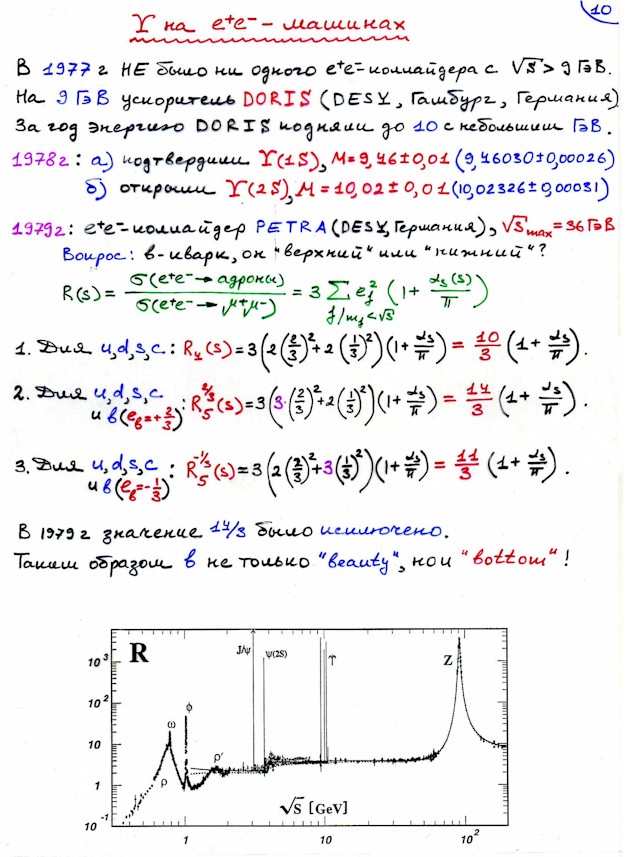 10
ϒ на e⁺e⁻ – машинах
В 1977 г НЕ было ни одного e⁺e⁻-коллайдера с √S > 9 ГэВ.
На 9 ГэВ ускоритель DORIS (DESY, Гамбург, Германия)
За год энергию DORIS подняли до 10 с небольшим ГэВ.
1978г: а) подтвердили ϒ(1S), M = 9,46±0,01 (9,46030±0,00026)
б) открыли ϒ(2S), M = 10,02±0,01 (10,02326±0,00031)
1979г: e⁺e⁻-коллайдер PETRA (DESY, Германия), √S max = 36 ГэВ
Вопрос: b-кварк, он "верхний" или "нижний"?
R(s) = σ(e⁺e⁻→адроны) / σ(e⁺e⁻→μ⁺μ⁻) = 3 ∑ f/m_f<√S e_f² (1 + α_s(s)/π)
1. Для u,d,s,c: R₄(s) = 3(2(2/3)²+2(1/3)²)(1+α_s/π) = 10/3 (1 + α_s/π).
2. Для u,d,s,c и b (e_b=+2/3): R₅^{2/3}(s) = 3(3·(2/3)²+2(1/3)²)(1+α_s/π) = 14/3 (1 + α_s/π).
3. Для u,d,s,c и b (e_b=-1/3): R₅^{-1/3}(s) = 3(2(2/3)²+3(1/3)²)(1+α_s/π) = 11/3 (1 + α_s/π).
В 1979 г значение 14/3 было исключено.
Таким образом b не только "beauty", но и "bottom"!
R
J/ψ
ψ(2S)
ϒ
Z
ω
ϕ
ρ
ρ′
10³
10²
10
1
10⁻¹
1
10
10²
√S [GeV]